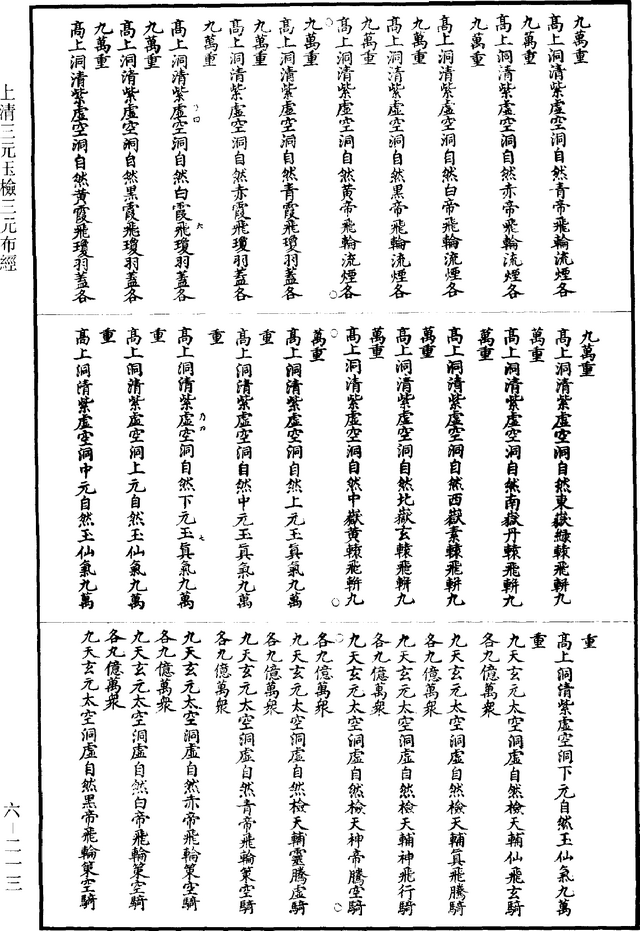 九萬重
高上洞清紫虛空洞自然青帝飛輪流煙各
九萬重
高上洞清紫虛空洞自然赤帝飛輪流煙各
九萬重
高上洞清紫虛空洞自然白帝飛輪流煙各
九萬重
高上洞清紫虛空洞自然黑帝飛輪流煙各
九萬重
高上洞清紫虛空洞自然黃帝飛輪流煙各
九萬重
高上洞清紫虛空洞自然青霞飛瓊羽蓋各
九萬重
高上洞清紫虛空洞自然赤霞飛瓊羽蓋各
九萬重
高上洞清紫虛空洞自然白霞飛瓊羽蓋各
九萬重
高上洞清紫虛空洞自然黑霞飛瓊羽蓋各
九萬重
高上洞清紫虛空洞自然黃霞飛瓊羽蓋各
九萬重
高上洞清紫虛空洞自然東嶽綠轅飛軿九
萬重
高上洞清紫虛空洞自然南嶽丹轅飛軿九
萬重
高上洞清紫虛空洞自然西嶽素轅飛軿九
萬重
高上洞清紫虛空洞自然北嶽玄轅飛軿九
萬重
高上洞清紫虛空洞自然中嶽黃轅飛軿九
萬重
高上洞清紫虛空洞自然上元玉真氣九萬
重
高上洞清紫虛空洞自然中元玉真氣九萬
重
高上洞清紫虛空洞自然下元玉真氣九萬
重
高上洞清紫虛空洞上元自然玉仙氣九萬
重
高上洞清紫虛空洞中元自然玉仙氣九萬
重
高上洞清紫虛空洞下元自然玉仙氣九萬
重
九天玄元太空洞虛自然檢天輔仙飛玄騎
各九億萬衆
九天玄元太空洞虛自然檢天輔真飛騰騎
各九億萬衆
九天玄元太空洞虛自然檢天輔神飛行騎
各九億萬衆
九天玄元太空洞虛自然檢天神帝騰空騎
各九億萬衆
九天玄元太空洞虛自然檢天輔靈騰虛騎
各九億萬衆
九天玄元太空洞虛自然青帝飛輪策空騎
各九億萬衆
九天玄元太空洞虛自然赤帝飛輪策空騎
各九億萬衆
九天玄元太空洞虛自然白帝飛輪策空騎
各九億萬衆
九天玄元太空洞虛自然黑帝飛輪策空騎
上清三元玉檢三元布經
六－二一三